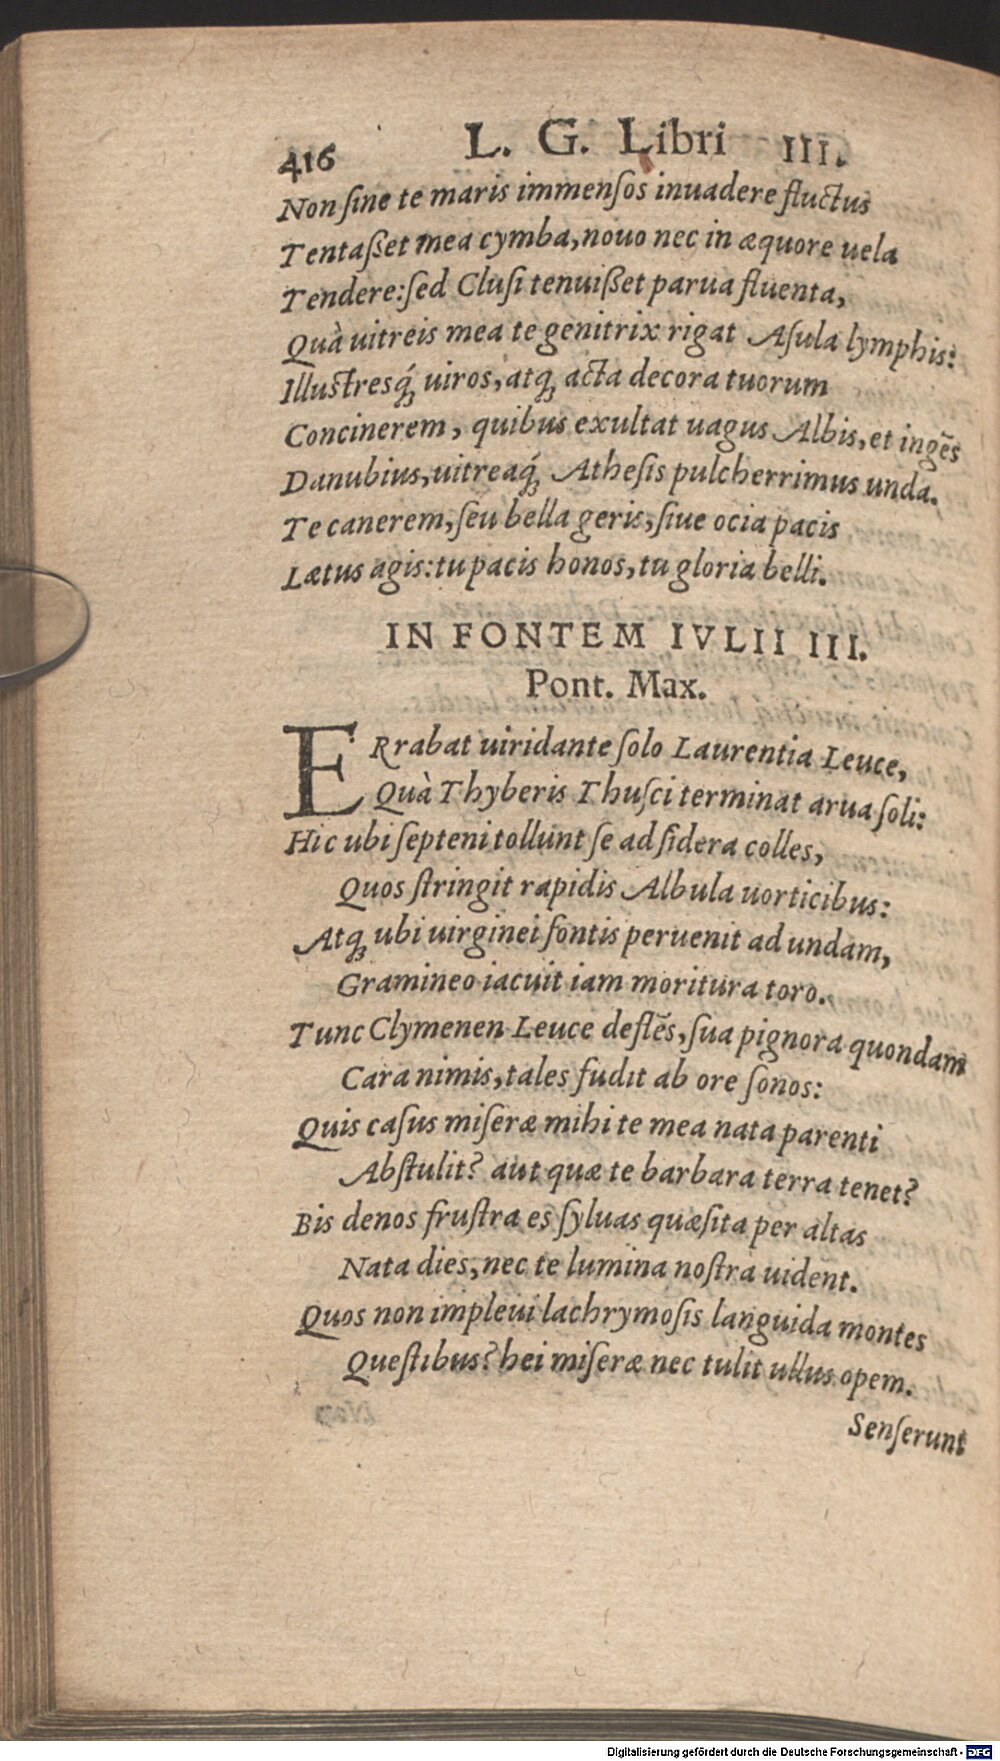 416 L. G. Libri III.
Non ſine te maris immenſos inuadere fluctus
Tentaßet mea cymba, nouo nec in æquore uela
Tendere: ſed Cluſi tenuißet parua fluenta,
Quà uitreis mea te genitrix rigat Aſula lymphis:
Illuſtresq́; uiros, atq; acta decora tuorum
Concinerem, quibus exultat uagus Albis, et ingēs
Danubius, uitreaq́; Atheſis pulcherrimus unda.
Te canerem, ſeu bella geris, ſiue ocia pacis
Lætus agis: tu pacis honos, tu gloria belli.
IN FONTEM IVLII III.
Pont. Max.
ERrabat uiridante ſolo Laurentia Leuce,
Quà Thyberis Thuſci terminat arua ſoli:
Hic ubi ſepteni tollunt ſe ad ſidera colles,
Quos ſtringit rapidis Albula uorticibus:
Atq; ubi uirginei fontis peruenit ad undam,
Gramineo iacuit iam moritura toro.
Tunc Clymenen Leuce deflēs, ſua pignora quondam
Cara nimis, tales fudit ab ore ſonos:
Quis caſus miſeræ mihi te mea nata parenti
Abſtulit? aut quæ te barbara terra tenet?
Bis denos fruſtra es ſyluas quæſita per altas
Nata dies, nec te lumina noſtra uident.
Quos non impleui lachrymoſis languida montes
Queſtibus? hei miſeræ nec tulit ullus opem.
Senſerunt
Digitalisierung gefördert durch die Deutsche Forschungsgemeinschaft - DFG